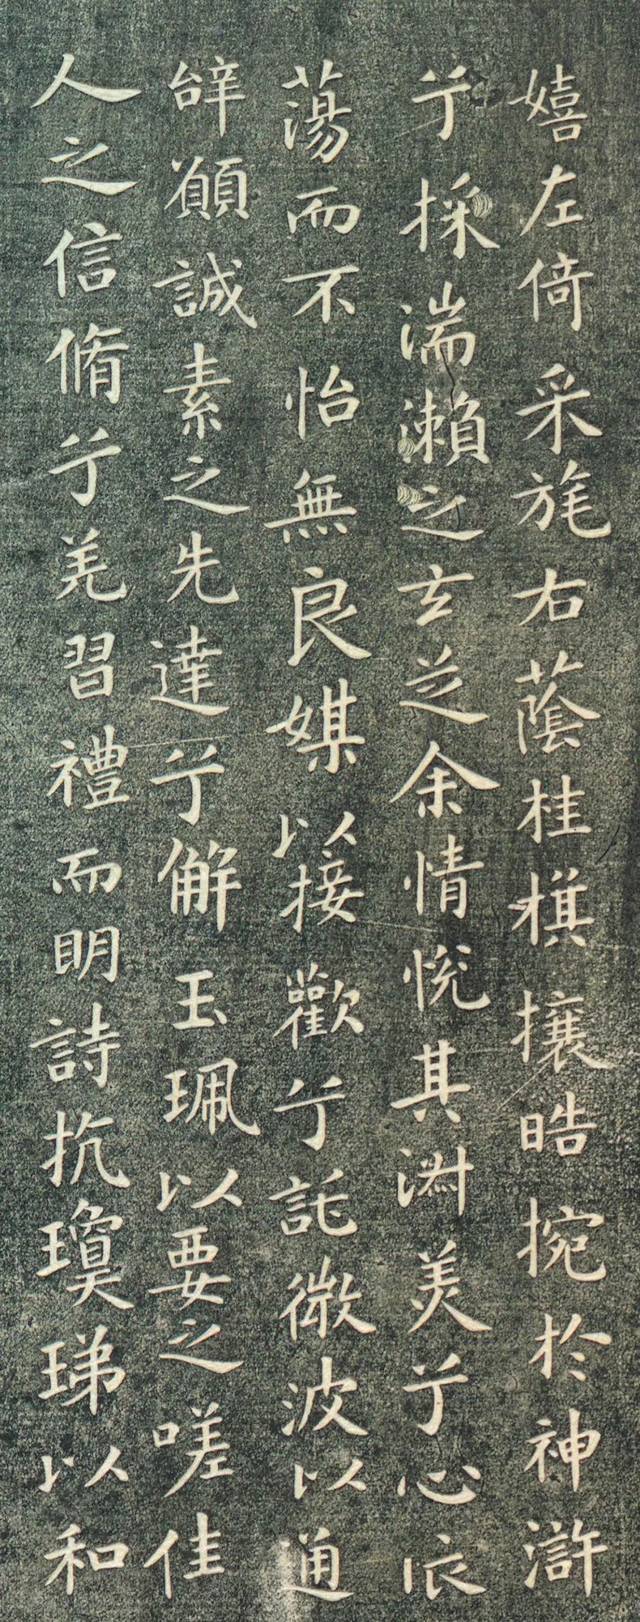 嬉左倚采旄右蔭桂棋攘皓捥於神滸
兮採湍瀨之玄芝余情悅其淑美兮心振
蕩而不怡無良媒以接歡兮託微波以通
辭願誠素之先達兮解玉珮以要之嗟佳
人之信脩兮羌習禮而明詩抗瓊珶以和